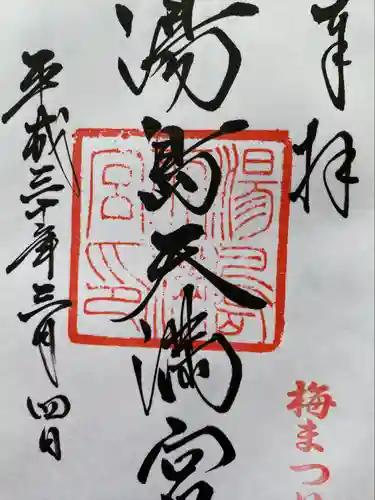 奉拝
湯島天満宮
平成三十年三月四日
梅まつ